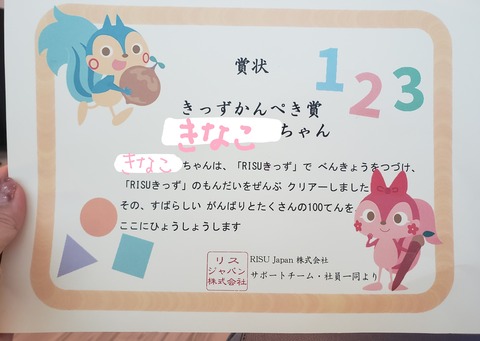 賞状
123
きっずかんぺき賞
きなこちゃん
きなこちゃんは、「RISUきっず」で べんきょうをつづけ、
「RISUきっず」のもんだいをぜんぶ クリアーしました
その、すばらしい がんばりとたくさんの100てんを
ここにひょうしょうします
リス
ジャパン
株式会社
RISU Japan 株式会社
サポートチーム・社員一同より